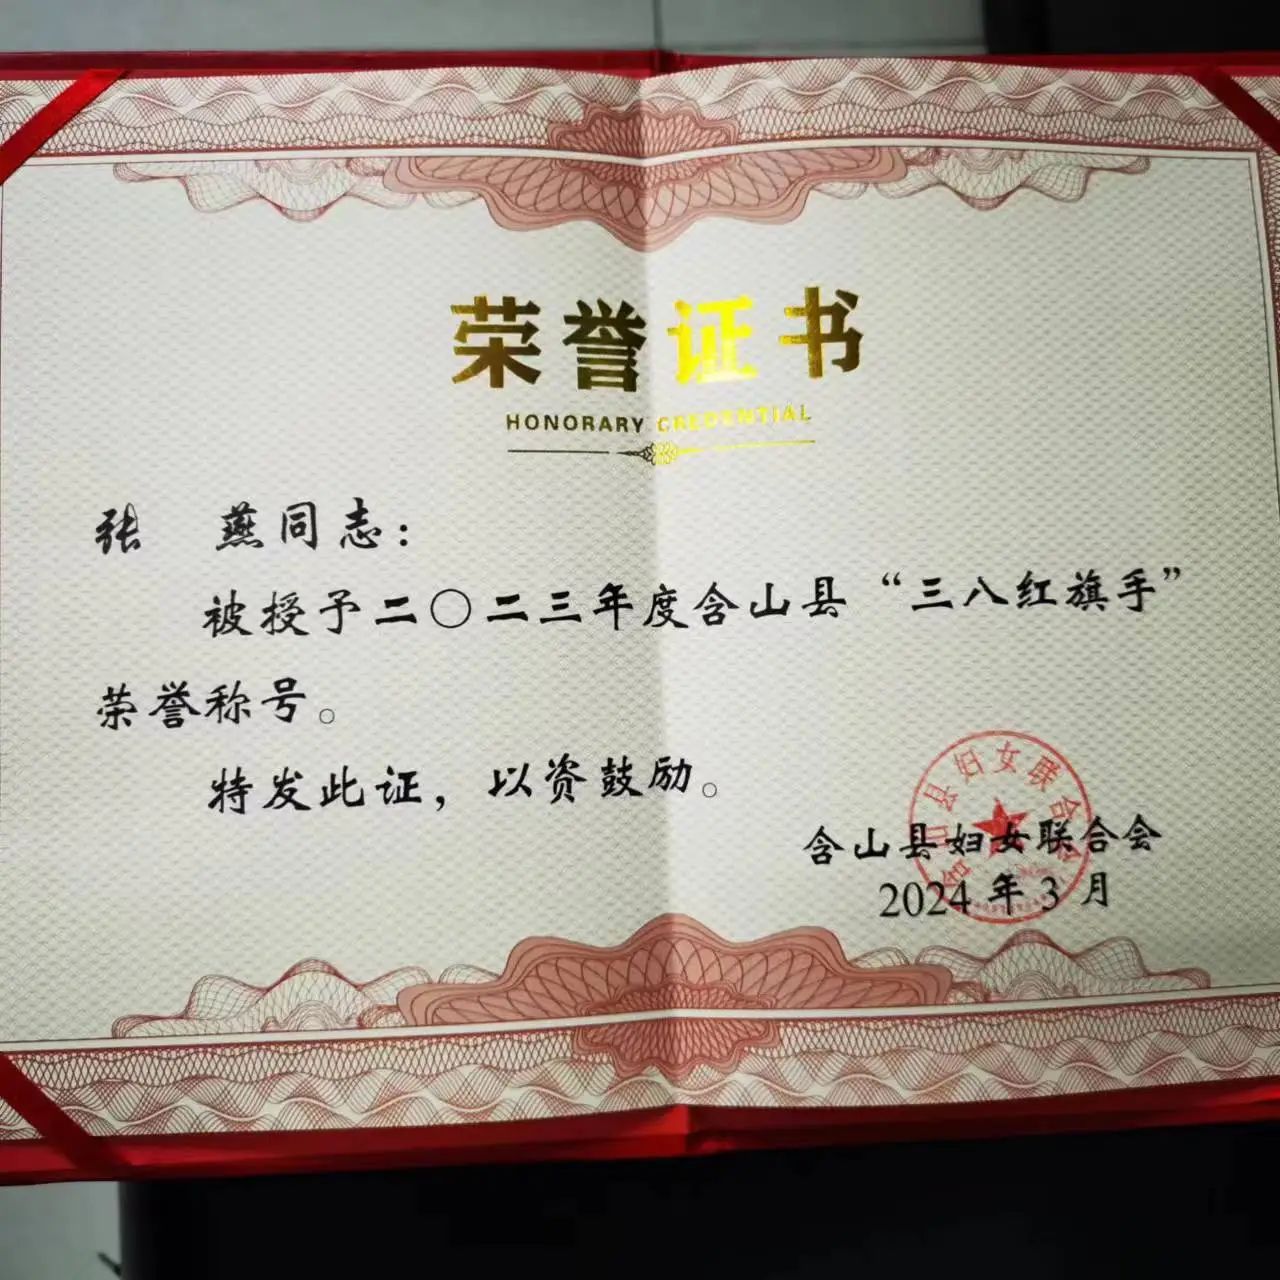 荣誉证书
HONORARY CREDENTIAL
张 燕同志：
被授予二〇二三年度含山县“三八红旗手”
荣誉称号。
特发此证，以资鼓励。
含山县妇女联合会
2024 年 3 月
含山县妇女联合会